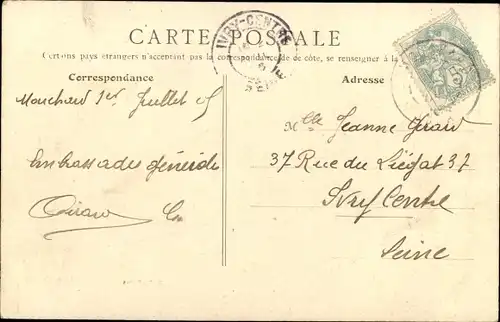 CARTE POSTALE
IVRY-CENTRE
Certains pays étrangers n'acceptant pas la correspondance de ce côté, se renseigner à la
Correspondance
Adresse
Mouchard 1er Juillet 05
Mlle Jeanne Girard
Embrassades générale
37 Rue du Liégat 37
Ivry Centre
Seine